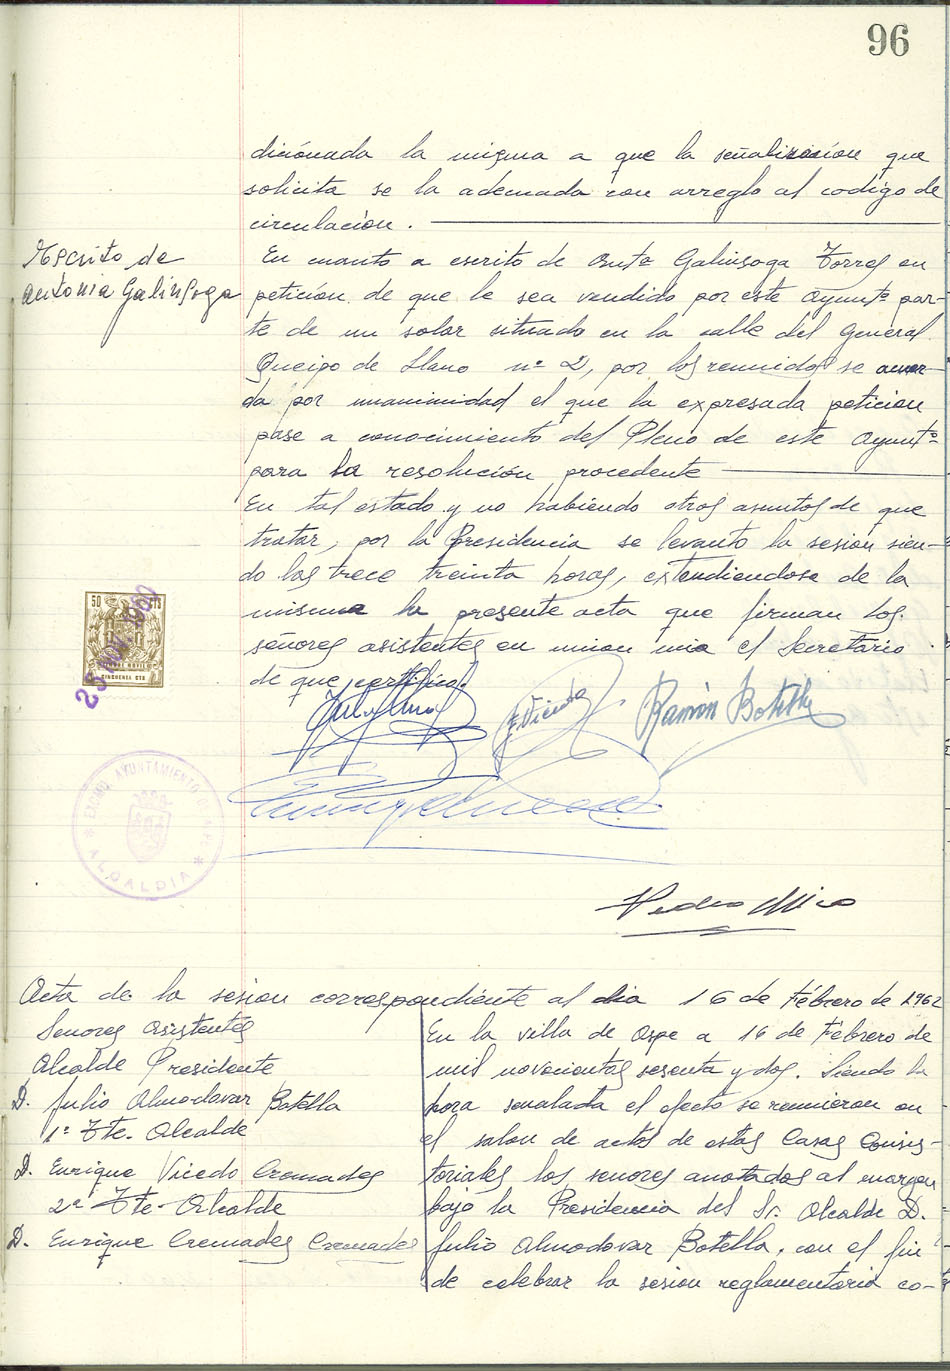 96
dicionada la misma a que la señalizacion que
solicita se la adecuada con arreglo al codigo de
circulacion.
Escrito de
Antonia Galinsoga
En cuanto a escrito de Antª Galinsoga Torres en
peticion de que le sea vendido por este Ayuntº par-
te de un solar situado en la calle del General
Queipo de Llano nº 2, por los reunidos se acuer-
da por unanimidad el que la expresada peticion
pase a conocimiento del Pleno de este Ayuntº
para la resolucion procedente
En tal estado y no habiendo otros asuntos de que
tratar, por la Presidencia se levanto la sesion sien-
do las trece treinta horas, extendiendose de la
misma la presente acta que firman los
señores asistentes en union mia el Secretario
de que certifico.
50 CTS
CINCUENTA CTS
25 NOV. 1960
E. Vicedo
Ramón Botella
EXCMO. AYUNTAMIENTO DE ASPE
* ALCALDIA *
Pedro Mico
Acta de la sesion correspondiente al dia 16 de Febrero de 1962
Senores Asistentes
Alcalde Presidente
D. Julio Almodovar Botella
1º Tte. Alcalde
D. Enrique Vicedo Cremades
2º Tte- Alcalde
D. Enrique Cremades Cremades
En la villa de Aspe a 16 de Febrero de
mil novecientos sesenta y dos. Siendo la
hora senalada el efecto se reunieron en
el salon de actos de estas Casas Consis-
toriales los senores anotados al margen
bajo la Presidencia del Sr. Alcalde D.
Julio Almodovar Botella, con el fin
de celebrar la sesion reglamentaria co-